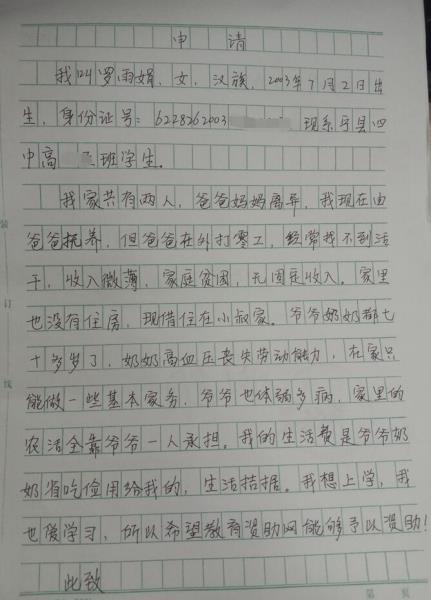 申 请
我叫罗雨娟，女，汉族，2003年7月2日出
生，身份证号：6228262003 现系宁县四
中高 班学生。
我家共有两人，爸爸妈妈离异，我现在由
爸爸抚养，但爸爸在外打零工，经常找不到活
干，收入微薄，家庭贫困，无固定收入。家里
也没有住房，现借住在小叔家。爷爷奶奶都七
十多岁了，奶奶高血压丧失劳动能力，在家只
能做一些基本家务，爷爷也体弱多病，家里的
农活全靠爷爷一人承担。我的生活费是爷爷奶
奶省吃俭用给我的，生活拮据。我想上学，我
也爱学习，所以希望教育资助网能够予以资助！
此致
第 页
装
订
线